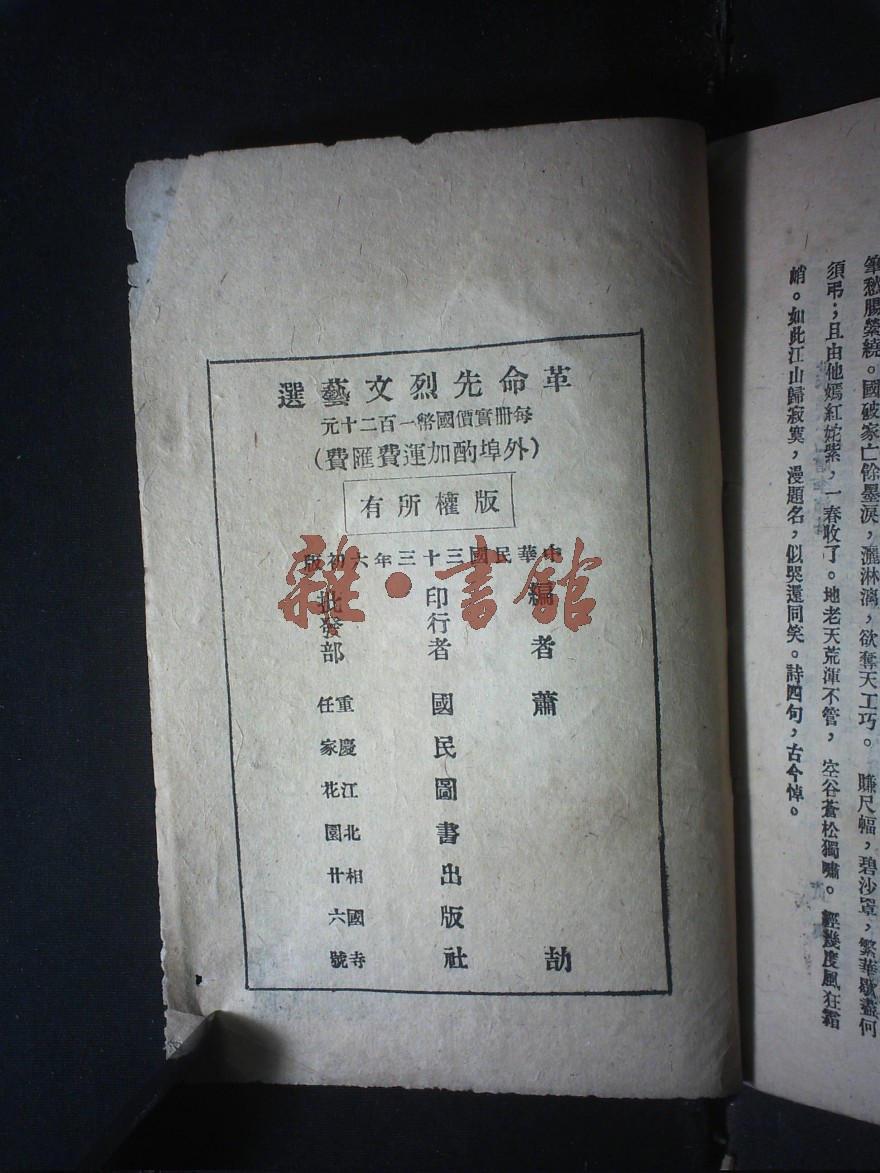 筆愁腸縈繞。國破家亡餘墨淚,灑淋漓,欲奪天工巧。 賺尺幅,碧沙罩,繁華歇盡何
須弔;且由他嫣紅姹紫,一春收了。地老天荒渾不管, 空谷蒼松獨嘯。 經幾度風狂霜
峭。如此江山歸寂寞,漫題名,似哭還同笑。詩四句,古今悼。
革命先烈文藝選
每冊實價國幣一百二十元
(外埠酌加運費匯費)
版權所有
中華民國三十三年六初版
編者 蕭 劼
印行者 國民圖書出版社
批發部 重慶江北相國寺
任家花園廿六號
雜·書館